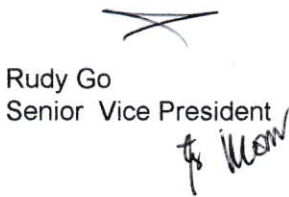 Rudy Go
Senior Vice President